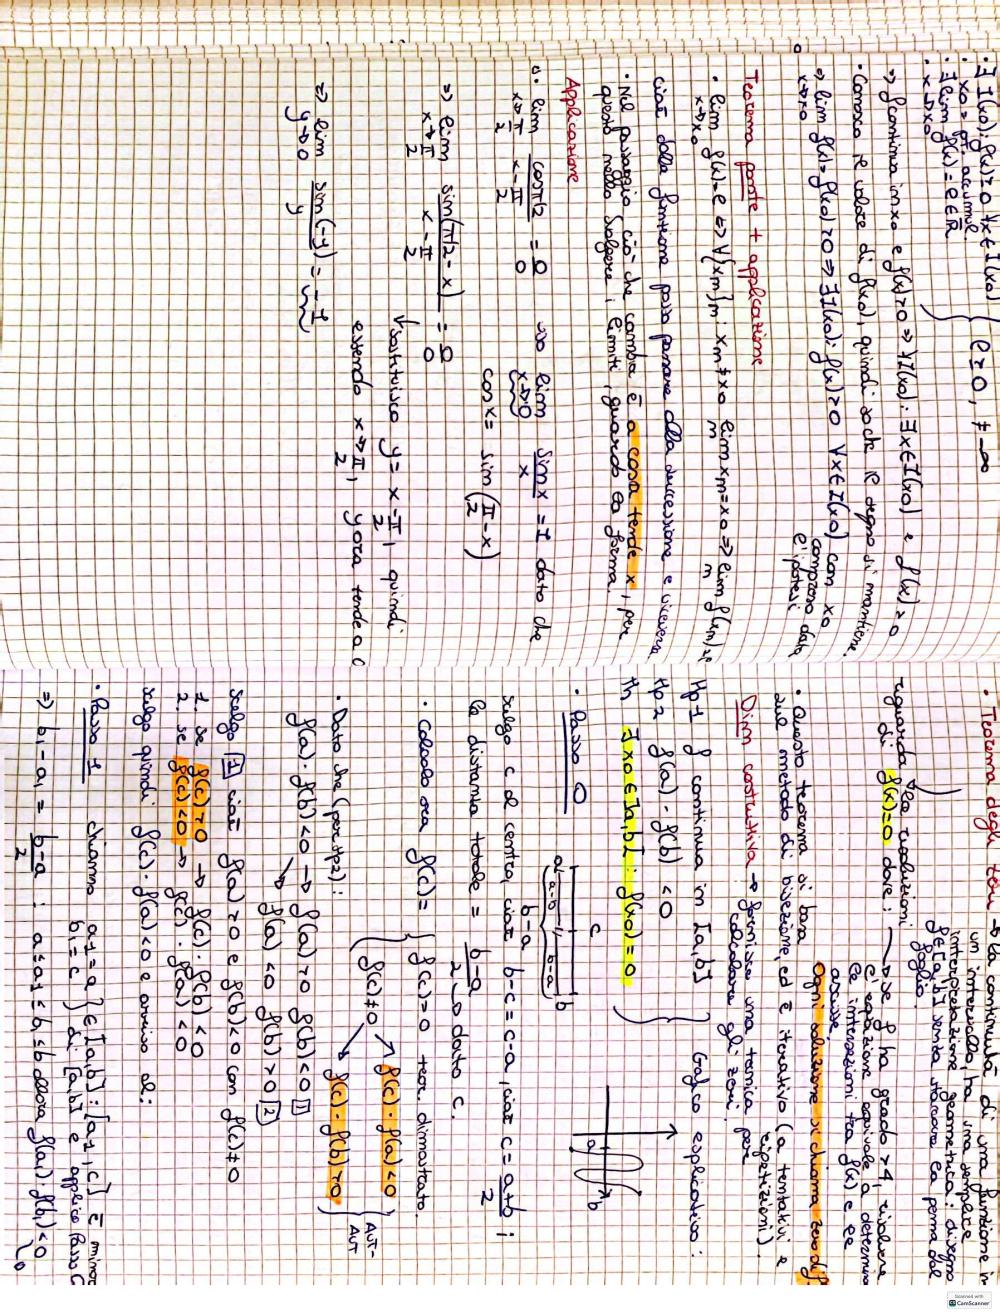 · ∃ I(x0): f(x)≥0 ∀x∈I(x0)
· x0 = pt. accumul. } e≥0, ≠ -∞
· ∃ lim f(x) = e ∈ R
x→x0
⇒ f continua in x0 e f(x)>0 ⇒ ∀I(x0): ∃x∈I(x0) e f(x)>0
· Conosco il valore di f(x0), quindi anche il segno si mantiene.
⇒ lim f(x)=f(x0)>0 ⇒ ∃I(x0): f(x)>0 ∀x∈I(x0) con x0
x→x0 compreso data
l'ipotesi
Teorema ponte + applicazione
· lim f(x)=e ⇔ ∀{xm}m: xm≠x0 lim xm=x0 ⇒ lim f(xm)=e
x→x0 m m
cioè dalla funzione posso passare alla successione e viceversa
· Nel passaggio ciò che cambia è a cosa tende x, per
questo nello svolgere i limiti, guardo la forma.
Applicazione
lim cosπ/2 = 0 uso lim sinx = 1 dato che
x→π/2 x-π/2 0 x→0 x
cosx = sin(π/2 - x)
⇒ lim sin(π/2-x) = 0
x→π/2 x-π/2 0
↓ sostituisco y = x-π/2, quindi
essendo x→π/2, y ora tende a 0
⇒ lim sin(-y) = -1
y→0 y
· Teorema degli zeri → la continuità di una funzione in
un intervallo, ha una semplice
interpretazione geometrica: disegno
f∈[a,b] senza staccare la penna dal
foglio.
riguarda le risoluzioni
di f(x)=0 dove: → se f ha grado >4, risolvere
l'equazione equivale a determinare
le intersezioni tra f(x) e le
ascisse.
Ogni soluzione si chiama zero di f.
· Questo teorema si basa
sul metodo di bisezione, ed è iterativo (a tentativi e
ripetizioni).
Dim costruttiva → fornisce una tecnica per
calcolare gli zeri.
Hp1 f continua in [a,b] Grafico esplicativo:
Hp2 f(a)·f(b) < 0
Th ∃ x0 ∈ ]a,b[ : f(x0) = 0
a b
· Passo 0
c
a b
b-a
scelgo c al centro, cioè b-c = c-a, cioè c = a+b ;
2
la distanza totale = b-a → dato c.
2
· Calcolo ora f(c) = { f(c)=0 teor. dimostrato.
f(c)≠0 → f(c)·f(a)<0 AUT-
→ f(c)·f(b)<0 AUT
· Dato che (per Hp2):
f(a)·f(b)<0 → f(a)>0 f(b)<0 1
→ f(a)<0 f(b)>0 2
scelgo 1 cioè f(a)>0 e f(b)<0 con f(c)≠0
1. se f(c)>0 → f(c)·f(b)<0
2. se f(c)<0 → f(c)·f(a)<0
scelgo quindi f(c)·f(a)<0 e arrivo al:
· Passo 1 chiamo a1=a } ∈ [a,b] : [a1,c] è
b1=c } di [a,b] e applico Passo 0
⇒ b1-a1 = b-a : a≤a1≤b1≤b allora f(a1)·f(b1)<0
2
Scanned with
CamScanner